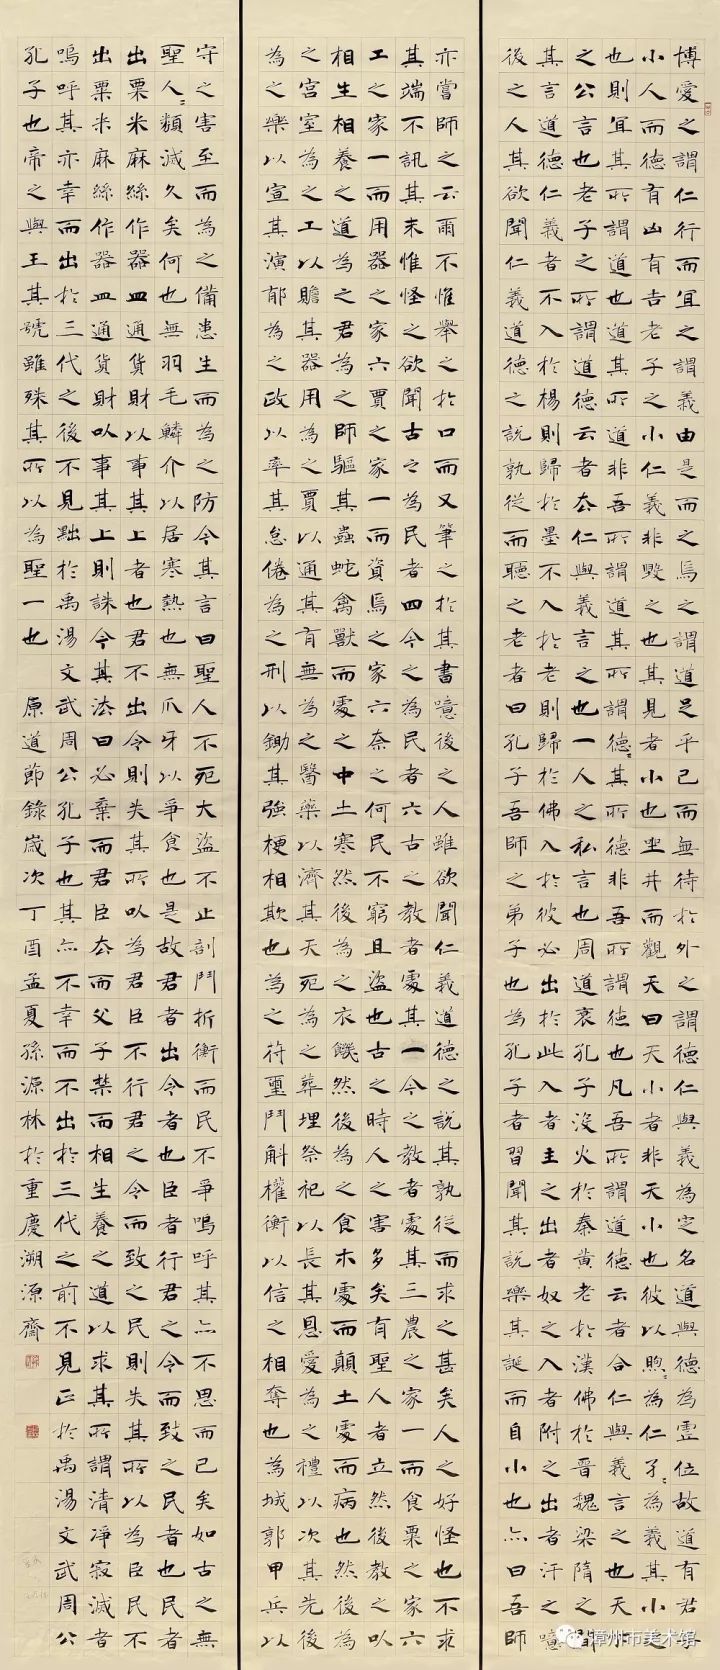 博愛之謂仁行而宜之謂義由是而之焉之謂道足乎己而無待於外之謂德仁與義為定名道與德為虛位故道有君子
小人而德有凶有吉老子之小仁義非毀之也其見者小也坐井而觀天曰天小者非天小也彼以煦〻為仁孑〻為義其小之
也則宜其所謂道也道其所道非吾所謂道其所謂德〻其所德非吾所謂德也凡吾所謂道德云者合仁與義言之也天下
之公言也老子之所謂道德云者去仁與義言之也一人之私言也周道衰孔子沒火於秦黃老於漢佛於晉魏梁隋之間
其言道德仁義者不入於楊則歸於墨不入於老則歸於佛入於彼必出於此入者主之出者奴之入者附之出者汙之噫
後之人其欲聞仁義道德之說孰從而聽之老者曰孔子吾師之弟子也為孔子者習聞其說樂其誕而自小也亦曰吾師
亦嘗師之云爾不惟舉之於口而又筆之於其書噫後之人雖欲聞仁義道德之說其孰從而求之甚矣人之好怪也不求
其端不訊其末惟怪之欲聞古之為民者四今之為民者六古之教者處其一今之教者處其三農之家一而食粟之家六
工之家一而用器之家六賈之家一而資焉之家六奈之何民不窮且盜也古之時人之害多矣有聖人者立然後教之以
相生相養之道為之君為之師驅其蟲蛇禽獸而處之中土寒然後為之衣饑然後為之食木處而顛土處而病也然後為
之宮室為之工以贍其器用為之賈以通其有無為之醫藥以濟其夭死為之葬埋祭祀以長其恩愛為之禮以次其先後
為之樂以宣其演郁為之政以率其怠倦為之刑以鋤其強梗相欺也為之符璽鬥斛權衡以信之相奪也為城郭甲兵以
守之害至而為之備患生而為之防今其言曰聖人不死大盜不止剖鬥折衡而民不爭嗚呼其亦不思而已矣如古之無
聖人〻類滅久矣何也無羽毛鱗介以居寒熱也無爪牙以爭食也是故君者出令者也臣者行君之令而致之民者也民者
出粟米麻絲作器皿通貨財以事其上者也君不出令則失其所以為君臣不行君之令而致之民則失其所以為臣民不
出粟米麻絲作器皿通貨財以事其上則誅今其法曰必棄而君臣去而父子禁而相生養之道以求其所謂清淨寂滅者
嗚呼其亦幸而出於三代之後不見黜於禹湯文武周公孔子也其亦不幸而不出於三代之前不見正於禹湯文武周公
孔子也帝之與王其號雖殊其所以為聖一也 原道節錄歲次丁酉孟夏孫源林於重慶溯源齋
漳州市美术馆